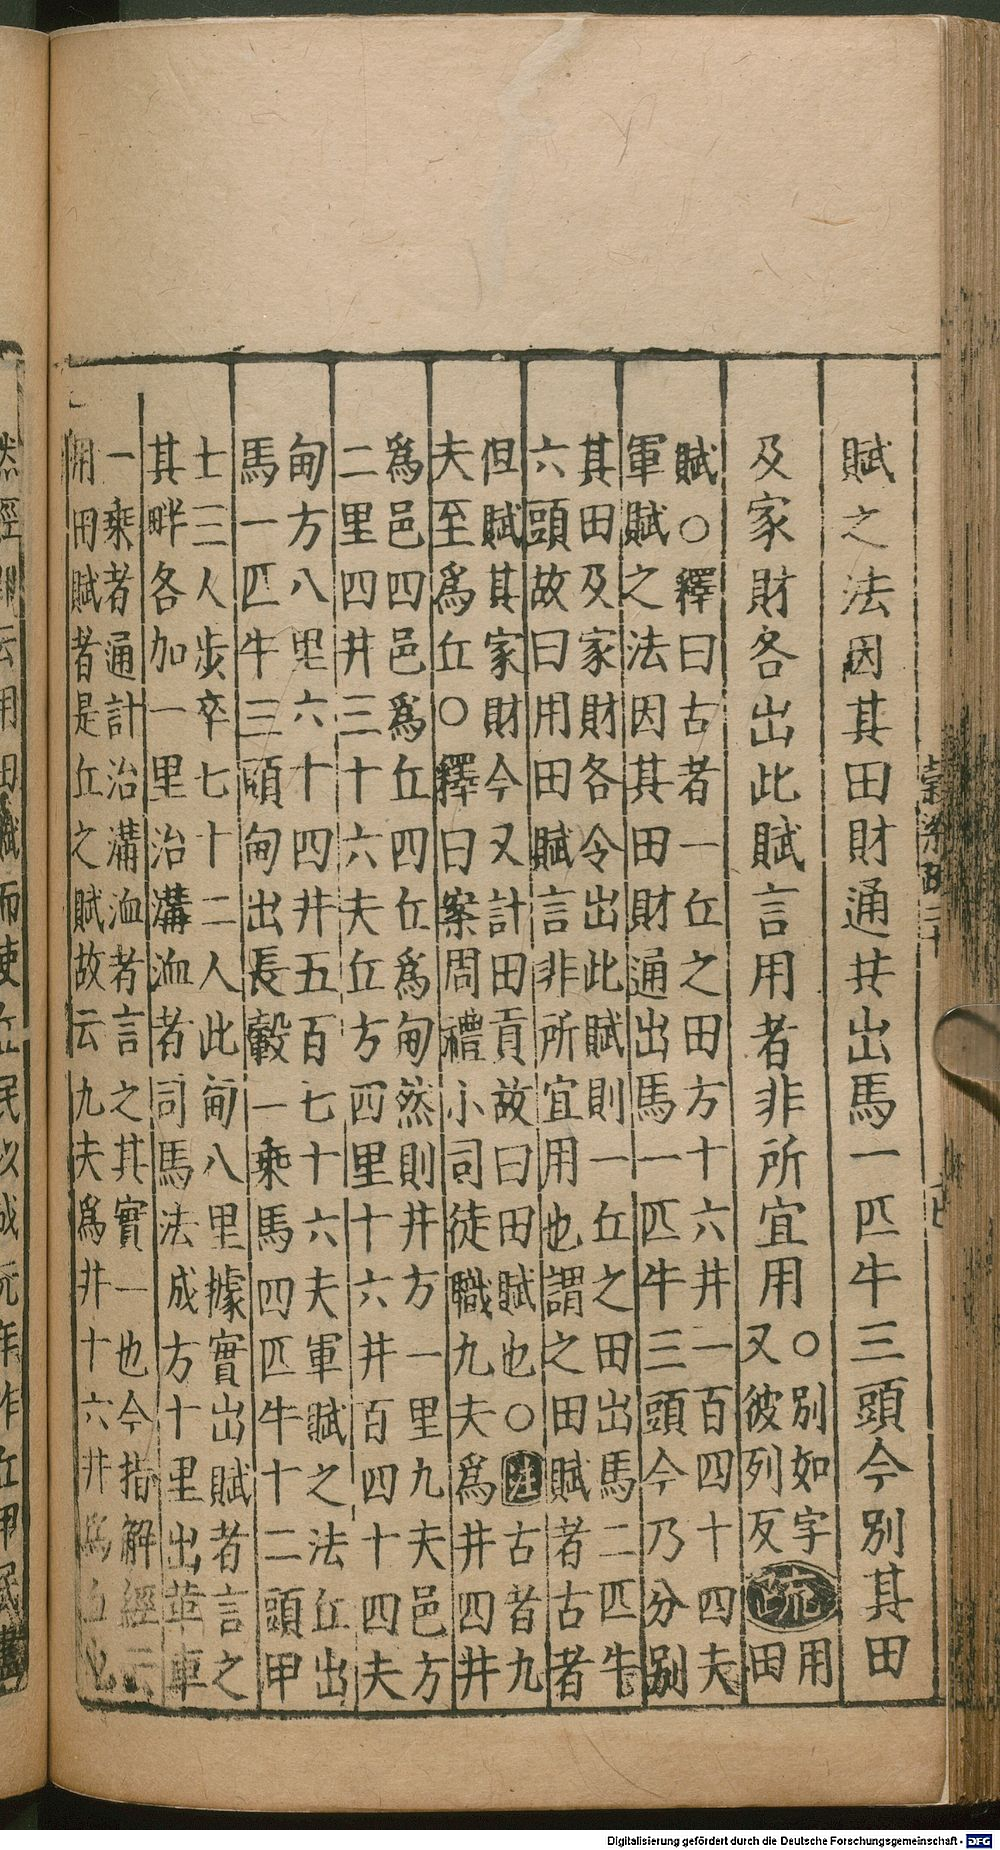 賦之法因其田財通共出馬一匹牛三頭今別其田
及家財各出此賦言用者非所宜用
○別如字
又彼列反
疏
用
田
賦○釋曰古者一丘之田方十六井一百四十四夫
軍賦之法因其田財通出馬一匹牛三頭今乃分別
其田及家財各令出此賦則一丘之田出馬二匹牛
六頭故曰用田賦言非所宜用也謂之田賦者古者
但賦其家財今又計田貢故曰田賦也○注古者九
夫至爲丘○釋曰案周禮小司徒職九夫爲井四井
爲邑四邑爲丘四丘爲甸然則井方一里九夫邑方
二里四井三十六夫丘方四里十六井百四十四夫
甸方八里六十四井五百七十六夫軍賦之法丘出
馬一匹牛三頭甸出長轂一乘馬四匹牛十二頭甲
士三人步卒七十二人此甸八里據實出賦者言之
其畔各加一里治溝洫者司馬法成方十里出革車
一乘者通計治溝洫者言之其實一也今指解經云
用田賦者是丘之賦故云九夫爲井十六井爲丘也
Digitalisierung gefördert durch die Deutsche Forschungsgemeinschaft - DFG